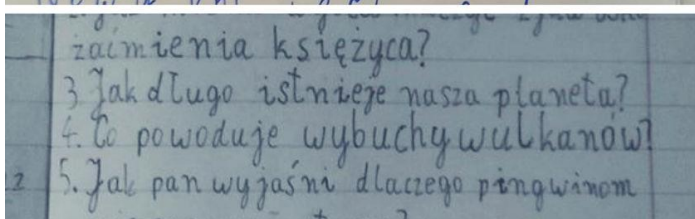 zaćmienia księżyca?
3 Jak długo istnieje nasza planeta?
4. Co powoduje wybuchy wulkanów?
5. Jak pan wyjaśni dlaczego pingwinom